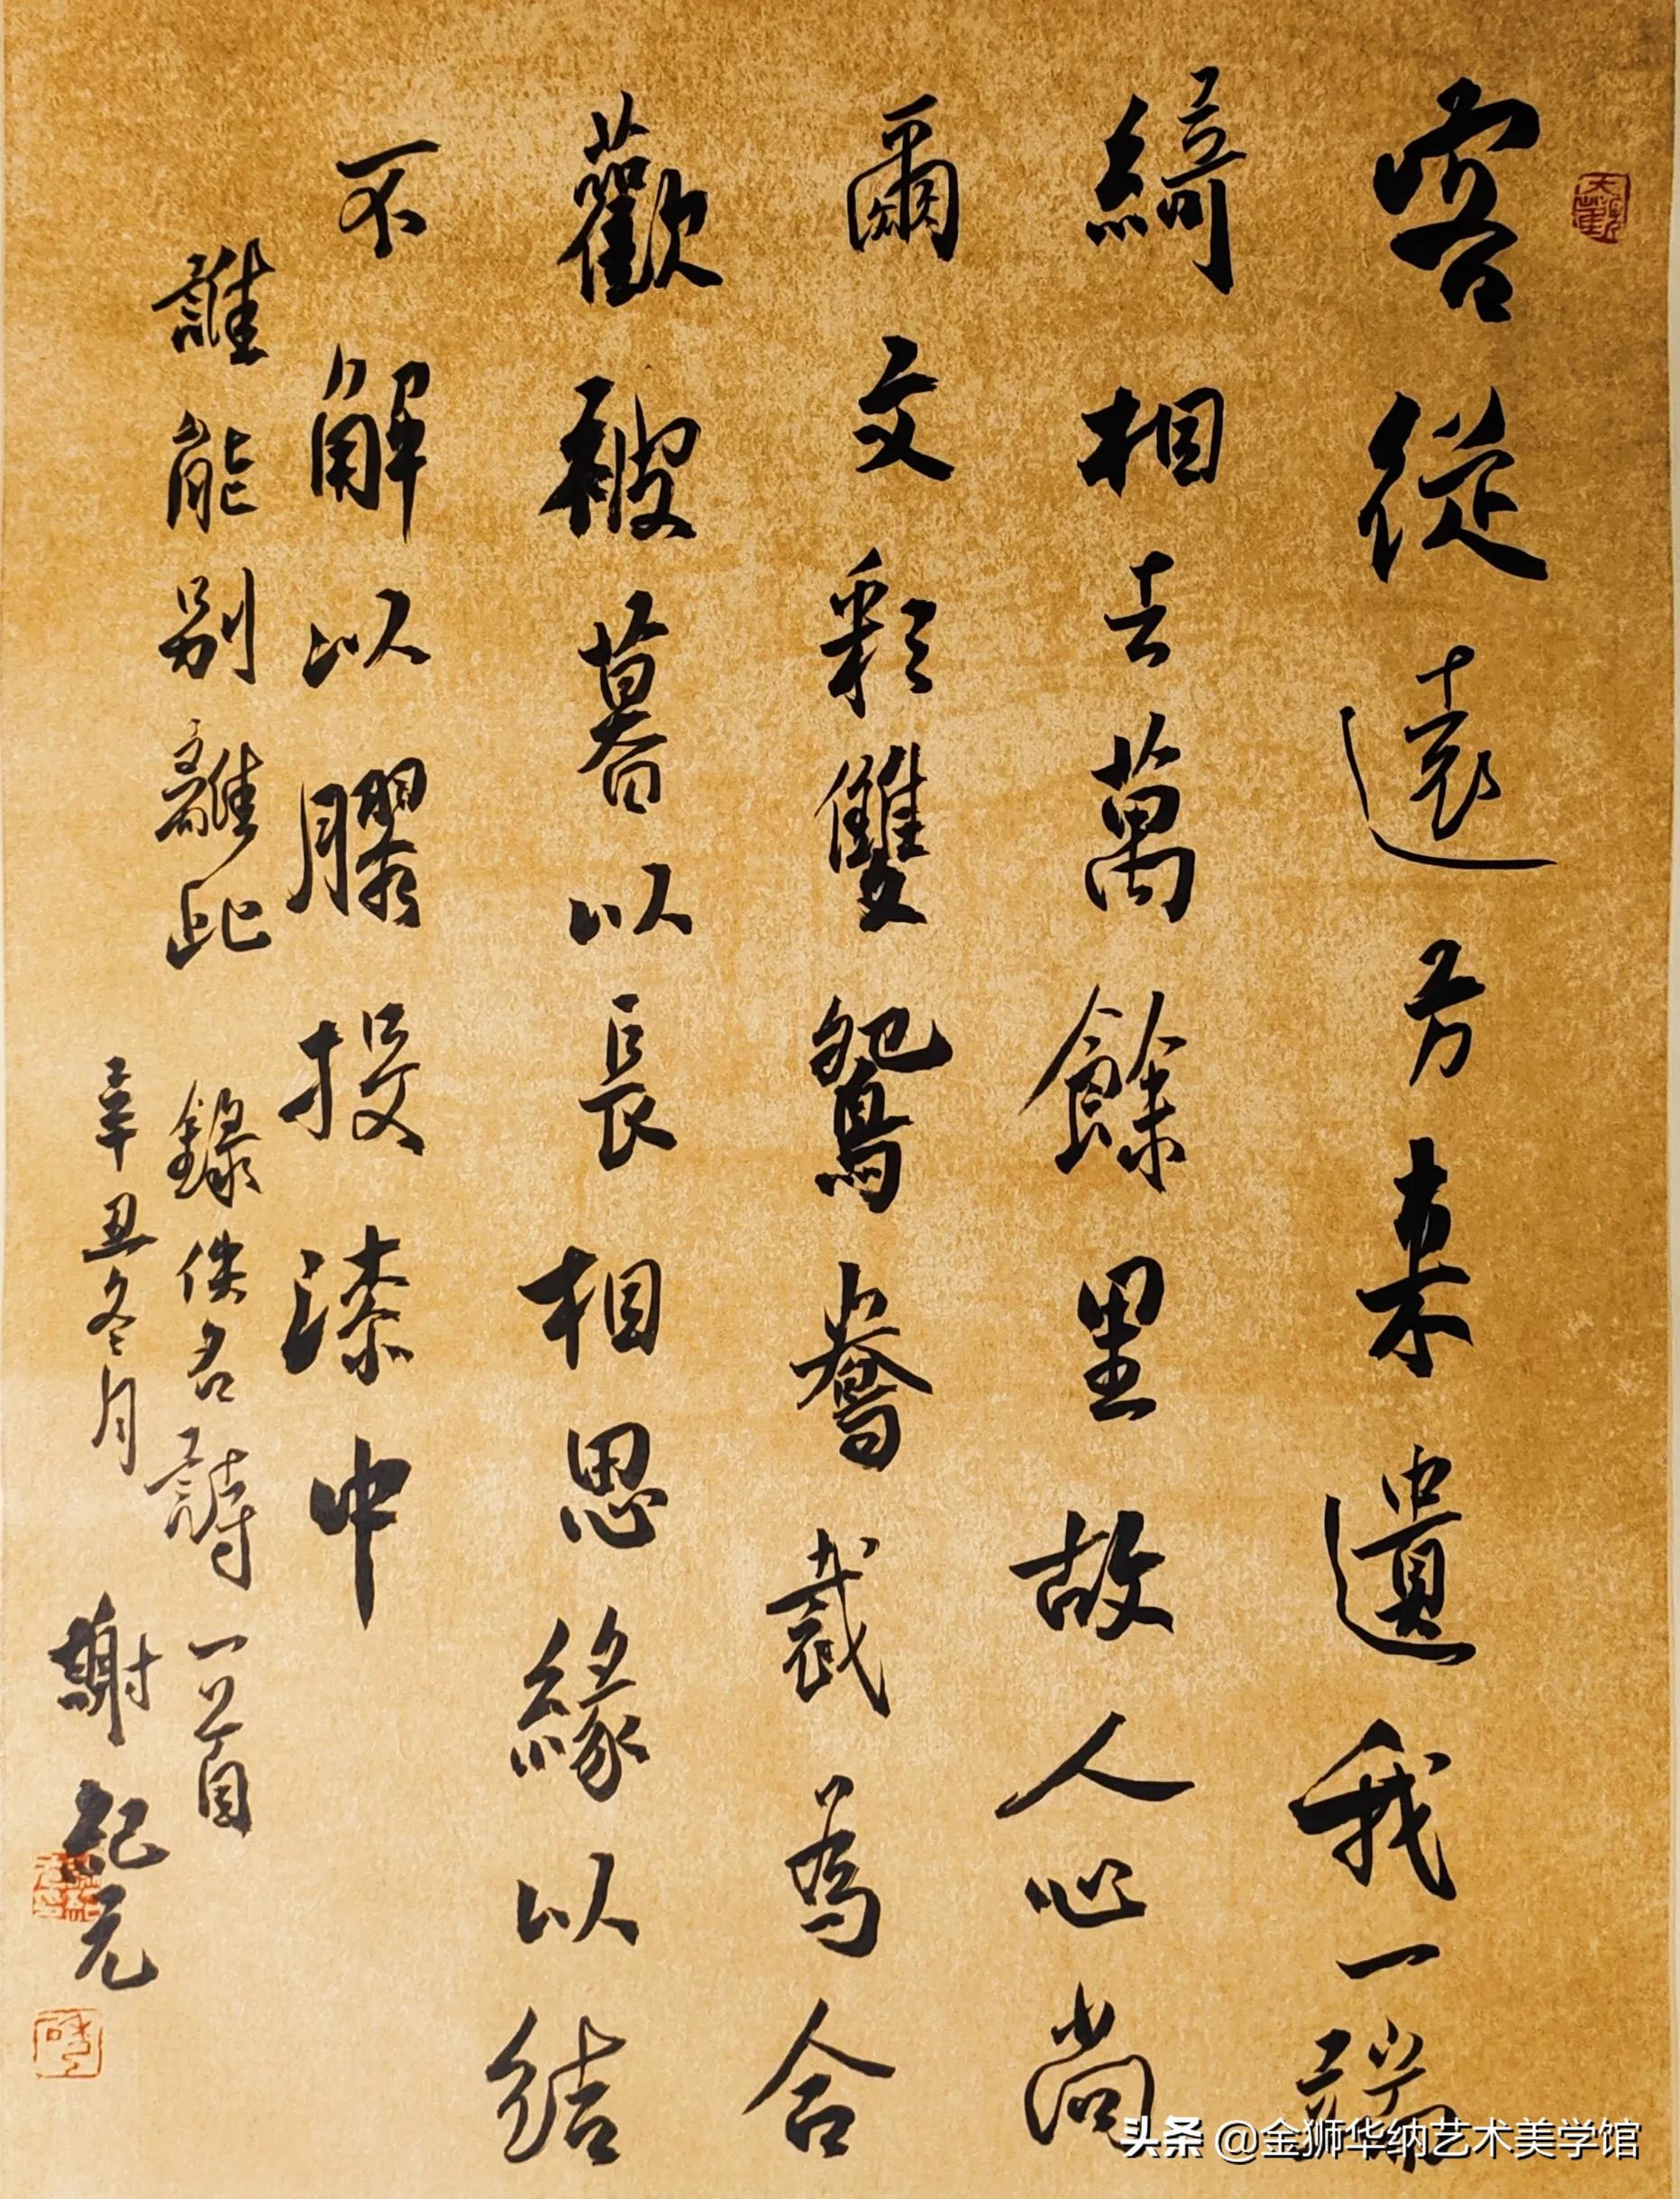 客從遠方来遺我一端
綺相去萬餘里故人心尚
爾文彩雙鴛鴦裁為合
歡被著以長相思緣以結
不解以膠投漆中
誰能別離此 錄佚名詩一首
辛丑冬月 謝紀元
头条 @金狮华纳艺术美学馆